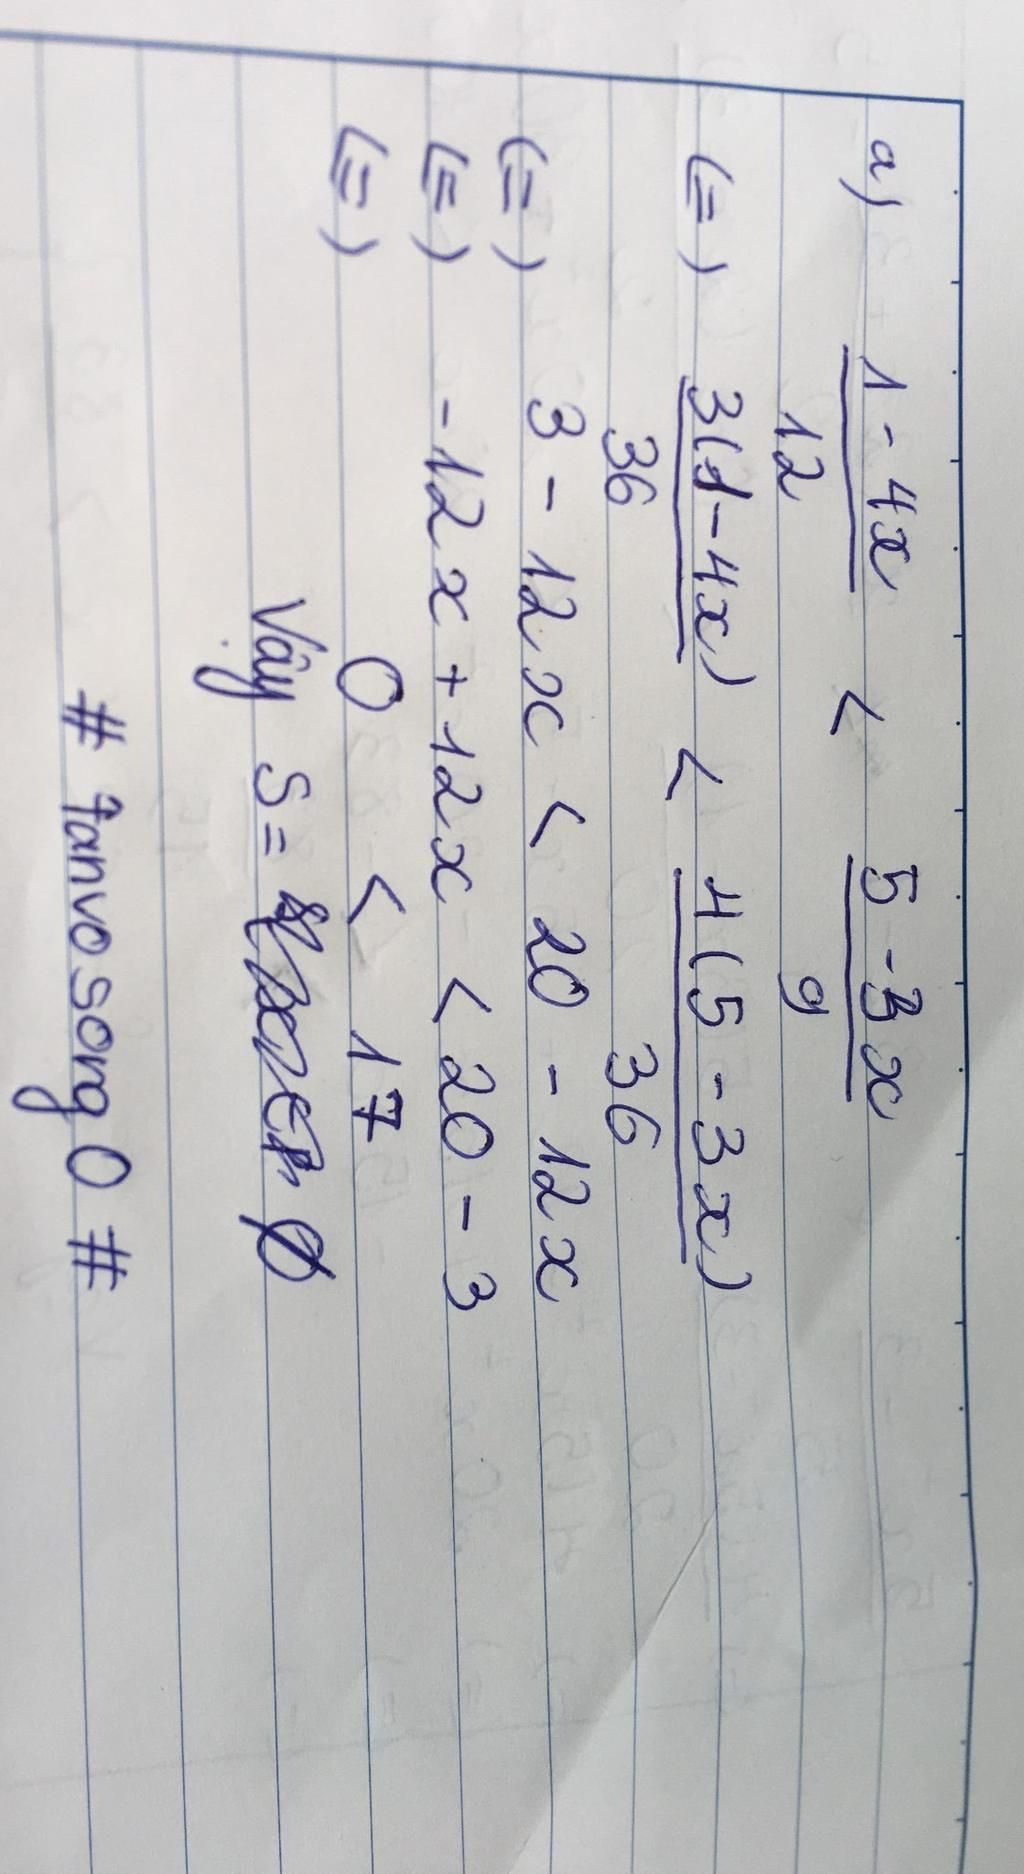 a) 1 - 4x < 5 - 3x
12 9
(=) 3(1-4x) < 4(5-3x)
36 36
(=) 3 - 12x < 20 - 12x
(=) -12x + 12x < 20 - 3
(=) 0 < 17
Vậy S = ∅
# tanvosong0 #